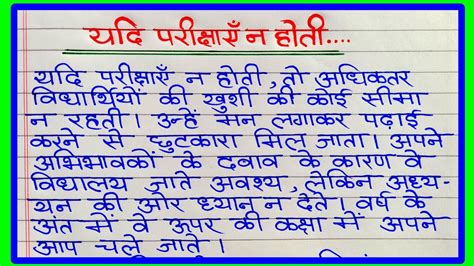 यदि परीक्षाएँ न होती....
यदि परीक्षाएँ न होती, तो अधिकतर
विद्यार्थियों की खुशी की कोई सीमा
न रहती। उन्हें मन लगाकर पढ़ाई
करने से छुटकारा मिल जाता। अपने
अभिभावकों के दवाव के कारण वे
विद्यालय जाते अवश्य, लेकिन अध्य-
यन की ओर ध्यान न देते। वर्ष के
अंत में वे ऊपर की कक्षा में अपने
आप चले जाते।